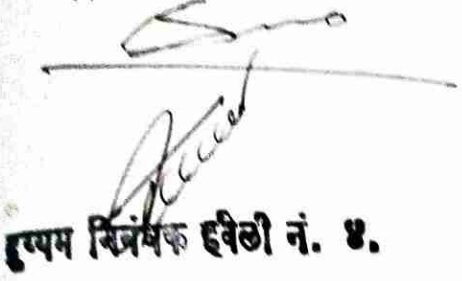 दुय्यम निबंधक हवेली नं. ४.